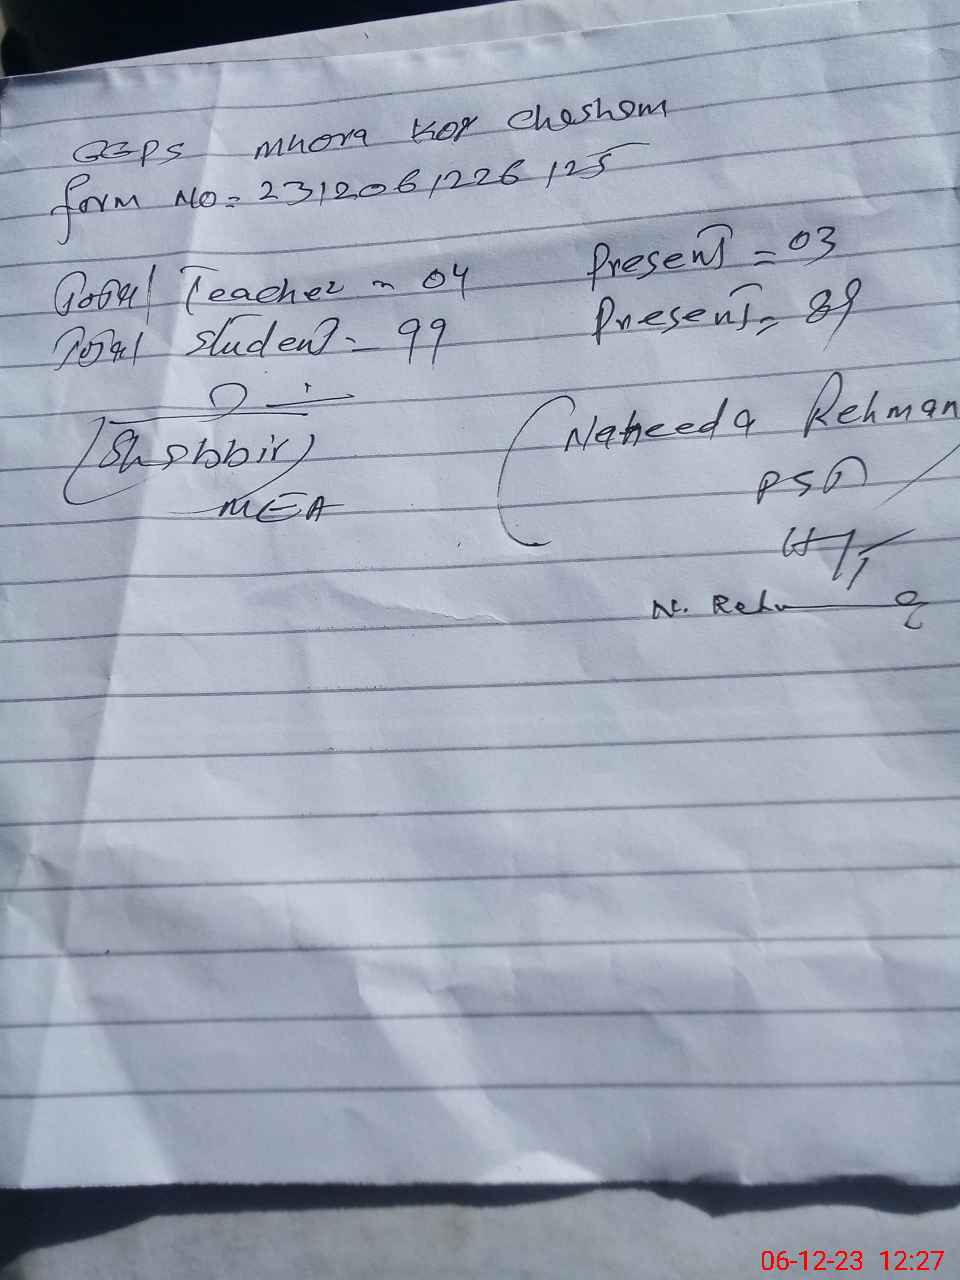 GGPS Mhora Kor Cheshem
form No = 231206122 6125
Total Teacher = 04 Present = 03
Total Student = 99 Present = 89
(Shabbir)
MEA
(Naheeda Rehman
PST)
H/T
N. Rehm
06-12-23 12:27